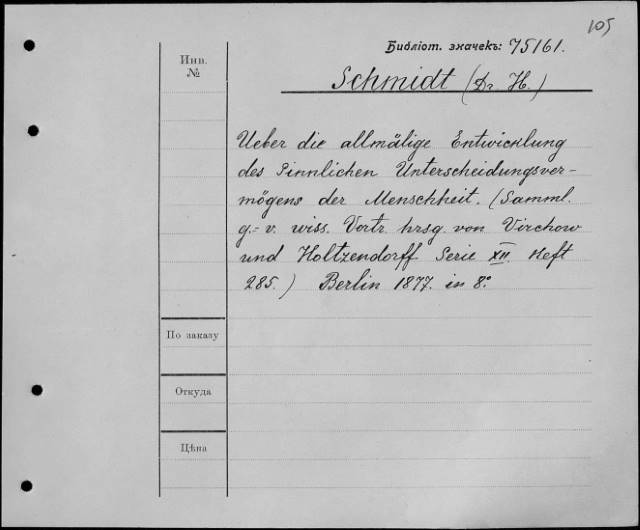 105
Библіот. значекъ: 75161.
Инв.
№
Schmidt (Dr. H.)
Ueber die allmälige Entwicklung
des Sinnlichen Unterscheidungsver-
mögens der Menschheit. (Samml.
g.-v. wiss. Vortr. hrsg. von Virchow
und Holtzendorff Serie XII. Heft
285.) Berlin 1877. in 8°
По заказу
Откуда
Цѣна